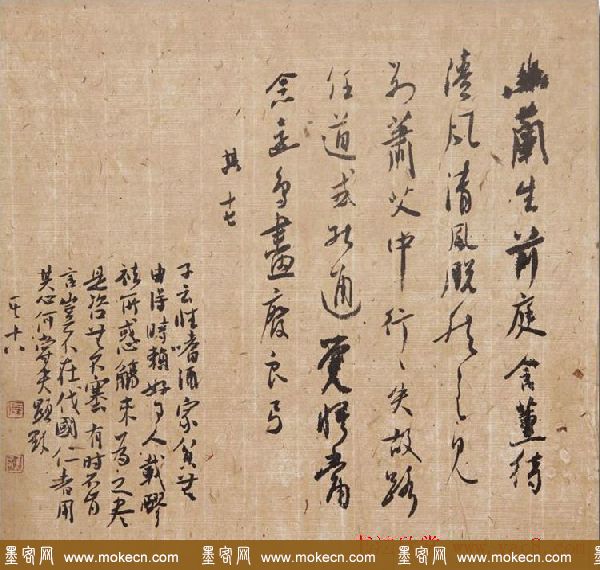 幽蘭生前庭含薰待
清風清風脫然至見
別蕭艾中行〻失故路
任道或能通覺悟當
念還鳥盡廢良弓
其十七
子云性嗜酒家貧無
由得時賴好事人載醪
祛所惑觴來為之盡
是諮無不塞有時不肯
言豈不在伐國仁者用
其心何嘗失顯默
其十八
墨客网 www.mokecn.com 墨客网 www.mokecn.com 墨客网 www.mokecn.com